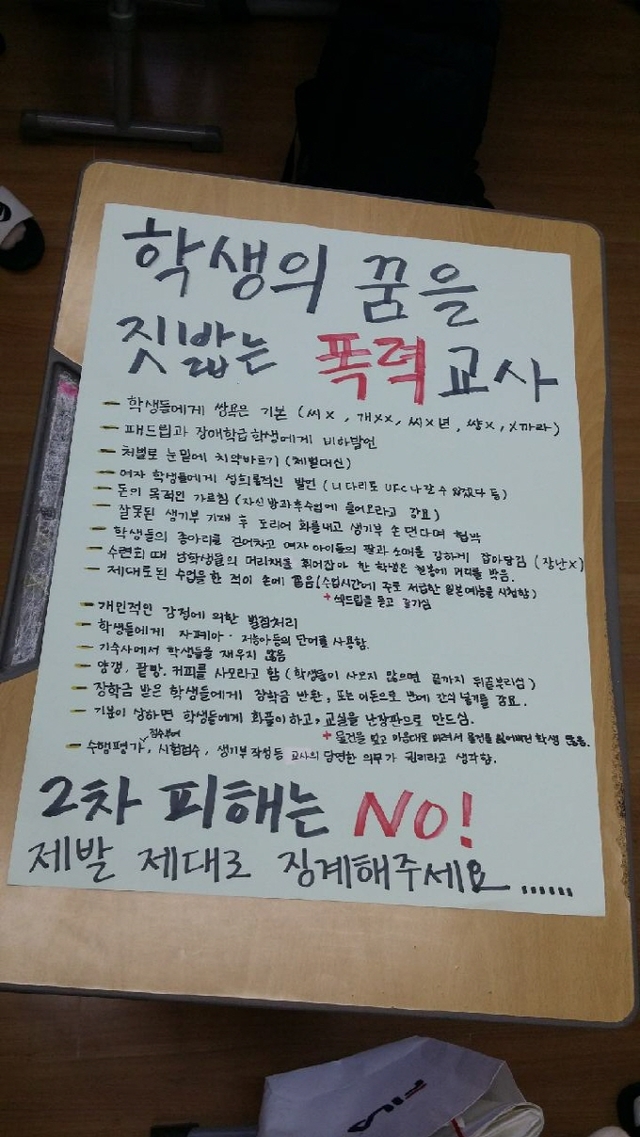 학생의 꿈을
짓밟는 폭력교사
- 학생들에게 쌍욕은 기본 (씨X, 개XX, 씨X년, 썅X, X까라)
- 패드립과 장애학급학생에게 비하발언
- 처벌로 눈밑에 치약바르기 (체벌대신)
- 여자 학생들에게 성희롱적인 발언 (니 다리로 UFC 나갈 수 있겠다 등)
- 돈의 목적인 가르침 (자신 방과후수업에 들어오라고 강요)
- 잘못된 생기부 기재 후 도리어 화를내고 생기부 손 댄다며 협박
- 학생들의 종아리를 걷어차고 여자 아이들의 팔과 소매를 강하게 잡아당김 (장난X)
- 수련회 때 남학생들의 머리채를 휘어잡아 한 학생은 철봉에 머리를 박음.
- 제대로된 수업을 한 적이 손에 꼽음 (수업시간에 주로 저급한 일본예능을 시청함)
+ 섹드립을 듣고 즐기심
- 개인적인 감정에 의한 벌점처리
- 학생들에게 자폐아·저능아등의 단어를 사용함.
- 기숙사에서 학생들을 재우지 않음
- 양갱, 팥빵, 커피를 사모라고 함 (학생들이 사오지 않으면 끝까지 뒤끝부리심)
- 장학금 받은 학생들에게 장학금 반환, 또는 이돈으로 반에 간식 넣기를 강요.
- 기분이 상하면 학생들에게 화풀이하고, 교실을 난장판으로 만드심.
+ 물건을 밟고 마음대로 버려서 물건을 잃어버린 학생 많음.
- 수행평가 점수부여, 시험점수, 생기부 작성 등 교사의 당연한 의무가 권리라고 생각함.
2차 피해는 NO!
제발 제대로 징계해주세요......
FILA